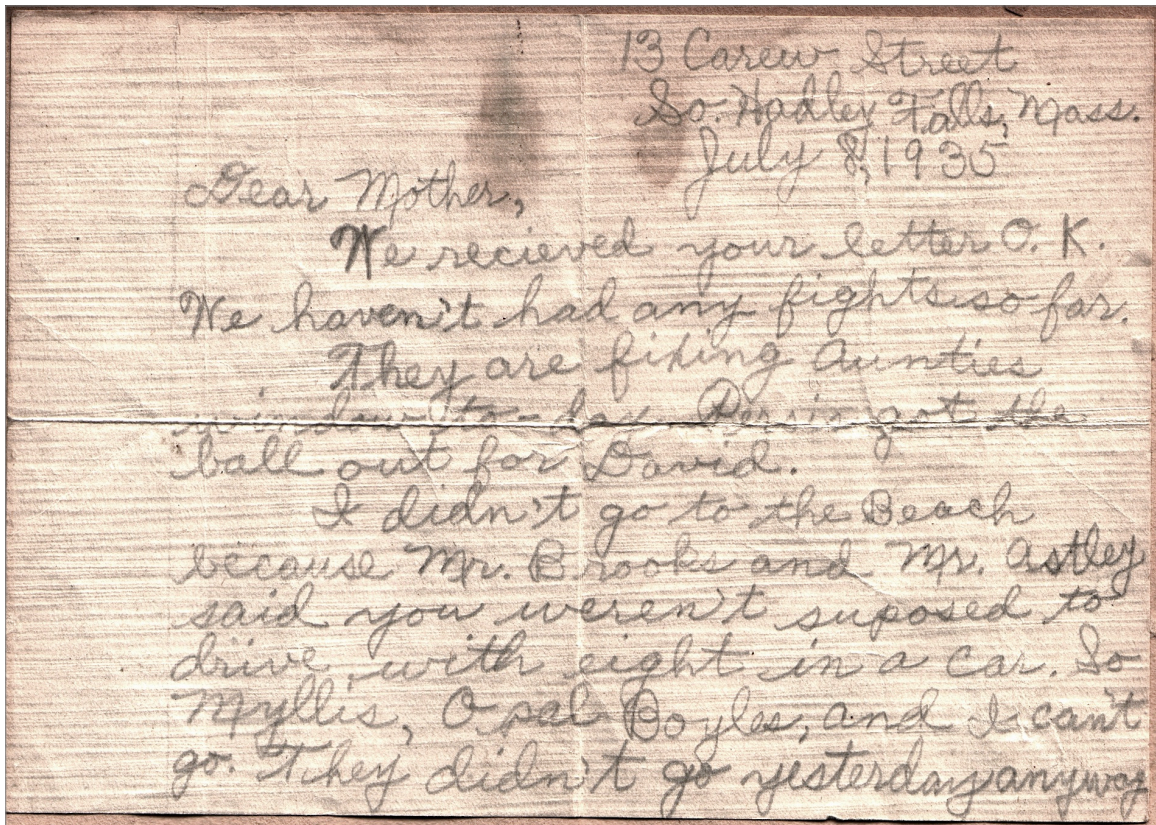 13 Carew Street
So. Hadley Falls, Mass.
July 8, 1935
Dear Mother,
We recieved your letter O. K.
We haven't had any fights so far.
They are fixing Aunties
window to-day. Perrin got the
ball out for David.
I didn't go to the Beach
because Mr. Brooks and Mr. Astley
said you weren't suposed to
drive with eight in a car. So
Myllis, Opal Boyles, and I can't
go. They didn't go yesterday anyway